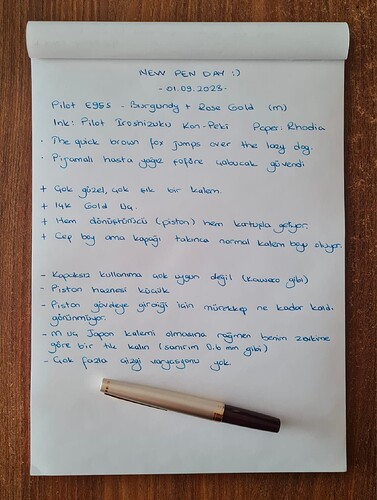 NEW PEN DAY :)
- 01.09.2023 -
Pilot E95S - Burgundy + Rose Gold (M)
Ink: Pilot Iroshizuku Kon-Peki Paper: Rhodia
· The quick brown fox jumps over the lazy dog.
· Pijamalı hasta yağız şoföre çabucak güvendi
+ Çok güzel, çok şık bir kalem.
+ 14k Gold uç.
+ Hem dönüştürücü (piston) hem kartuşla geliyor.
+ Cep boy ama kapağı takınca normal kalem boyu oluyor.
- Kapaksız kullanıma çok uygun değil (Kaweco gibi)
- Piston haznesi küçük.
- Piston gövdeye girdiği için mürekkep ne kadar kaldı
görünmüyor.
- M uç Japon kalemi olmasına rağmen benim zevkime
göre bir tık kalın (sanırım 0.6 mm gibi)
- Çok fazla çizgi varyasyonu yok.